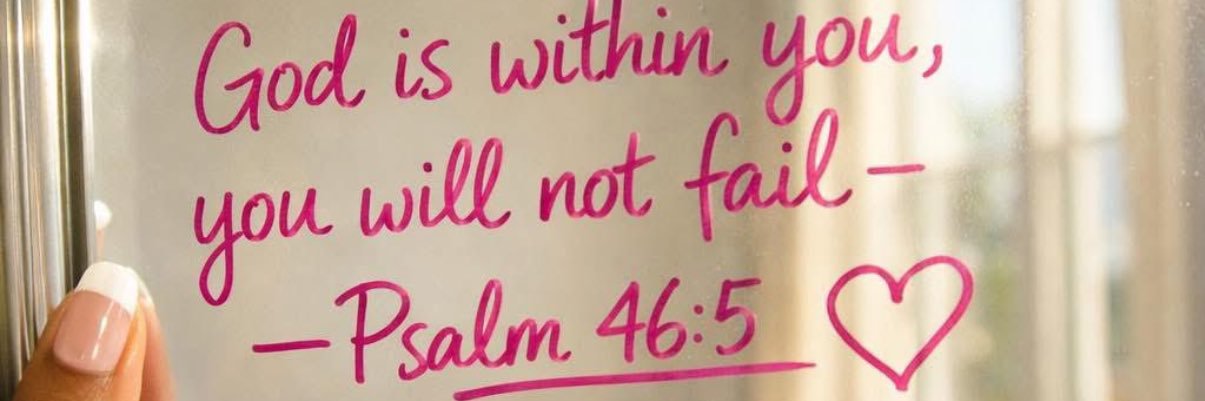 God is within you,
you will not fail –
– Psalm 46:5 ♡